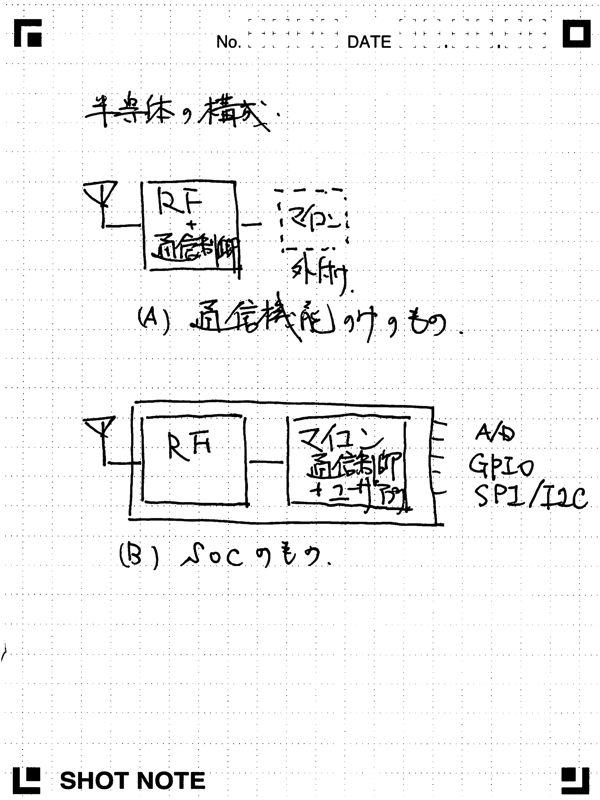 No. DATE
半導体の構成.
RF
+
通信制御
マイコン
外付け.
(A) 通信機能のけのもの.
RF
マイコン
通信制御
+ユーザアプリ
A/D
GPIO
SPI/I2C
(B) SoCのもの.
SHOT NOTE